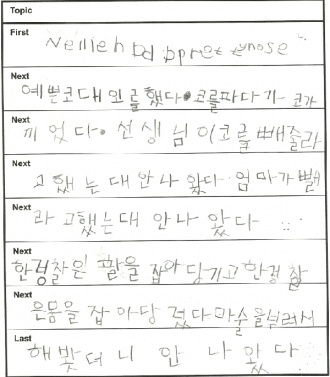 Topic
First
Next
예쁜코대외를했다·코를파다가 코가
Next
끼었다·선생님이코를빼줄라
Next
고했는대안나왔다 엄마가뺄
Next
라고했는대 안나왔다
Next
한경찰은 팔을 잡아당기고한경찰
Next
은몸을 잡아당겼다마술을부려서
Last
해봤더니 안 나왔다